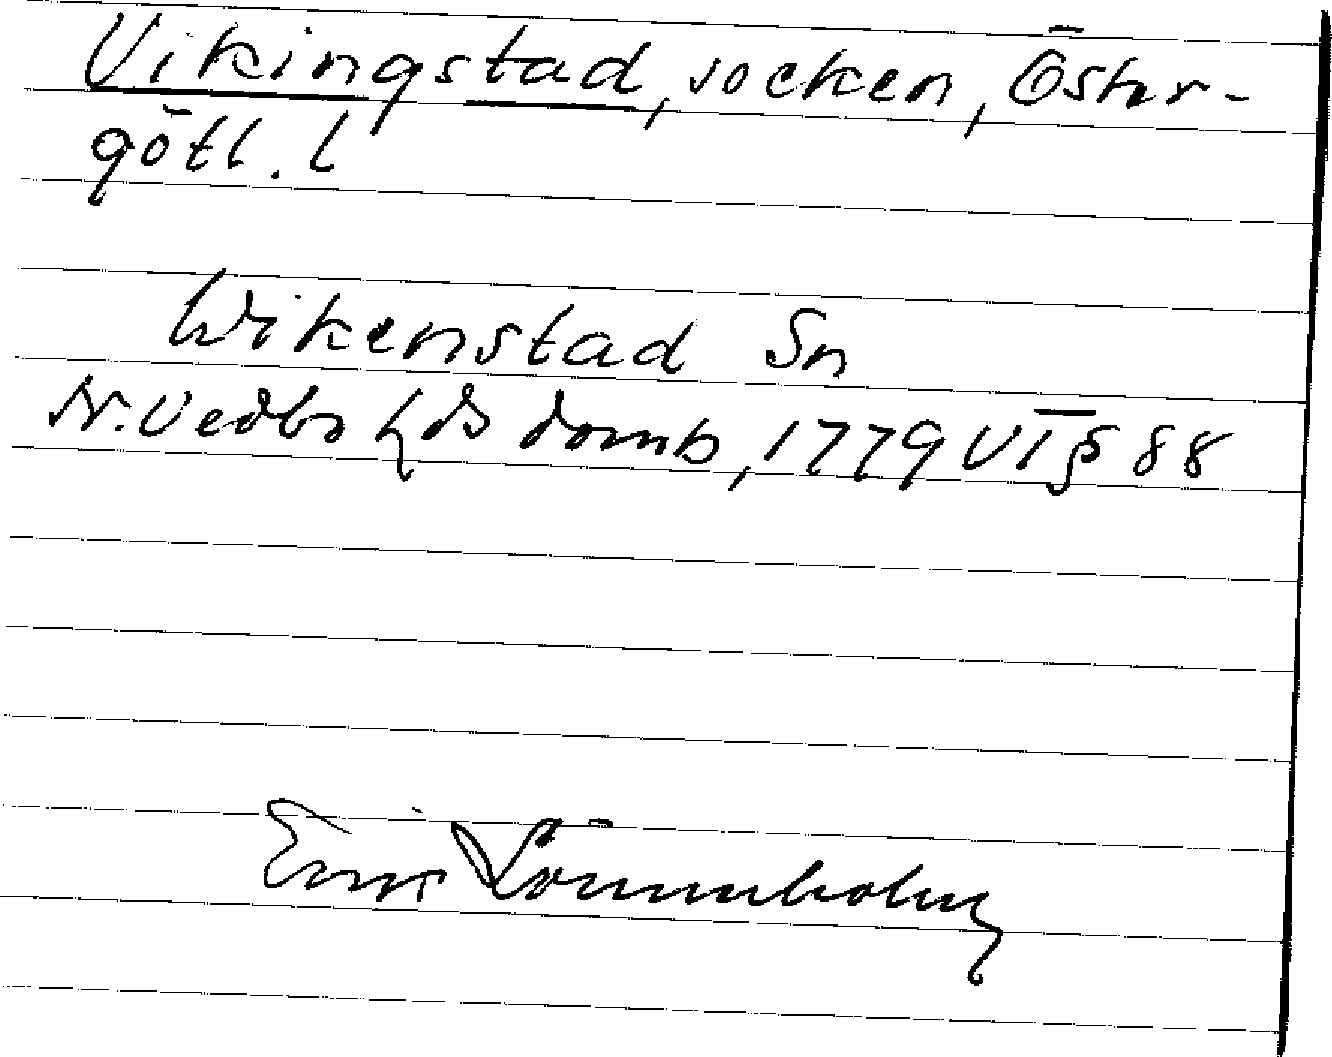 Vikingstad, socken, Öster-
götl. l
Wikenstad Sn
N. Vedbo hds domb, 1779 VI § 88
Lönnholm